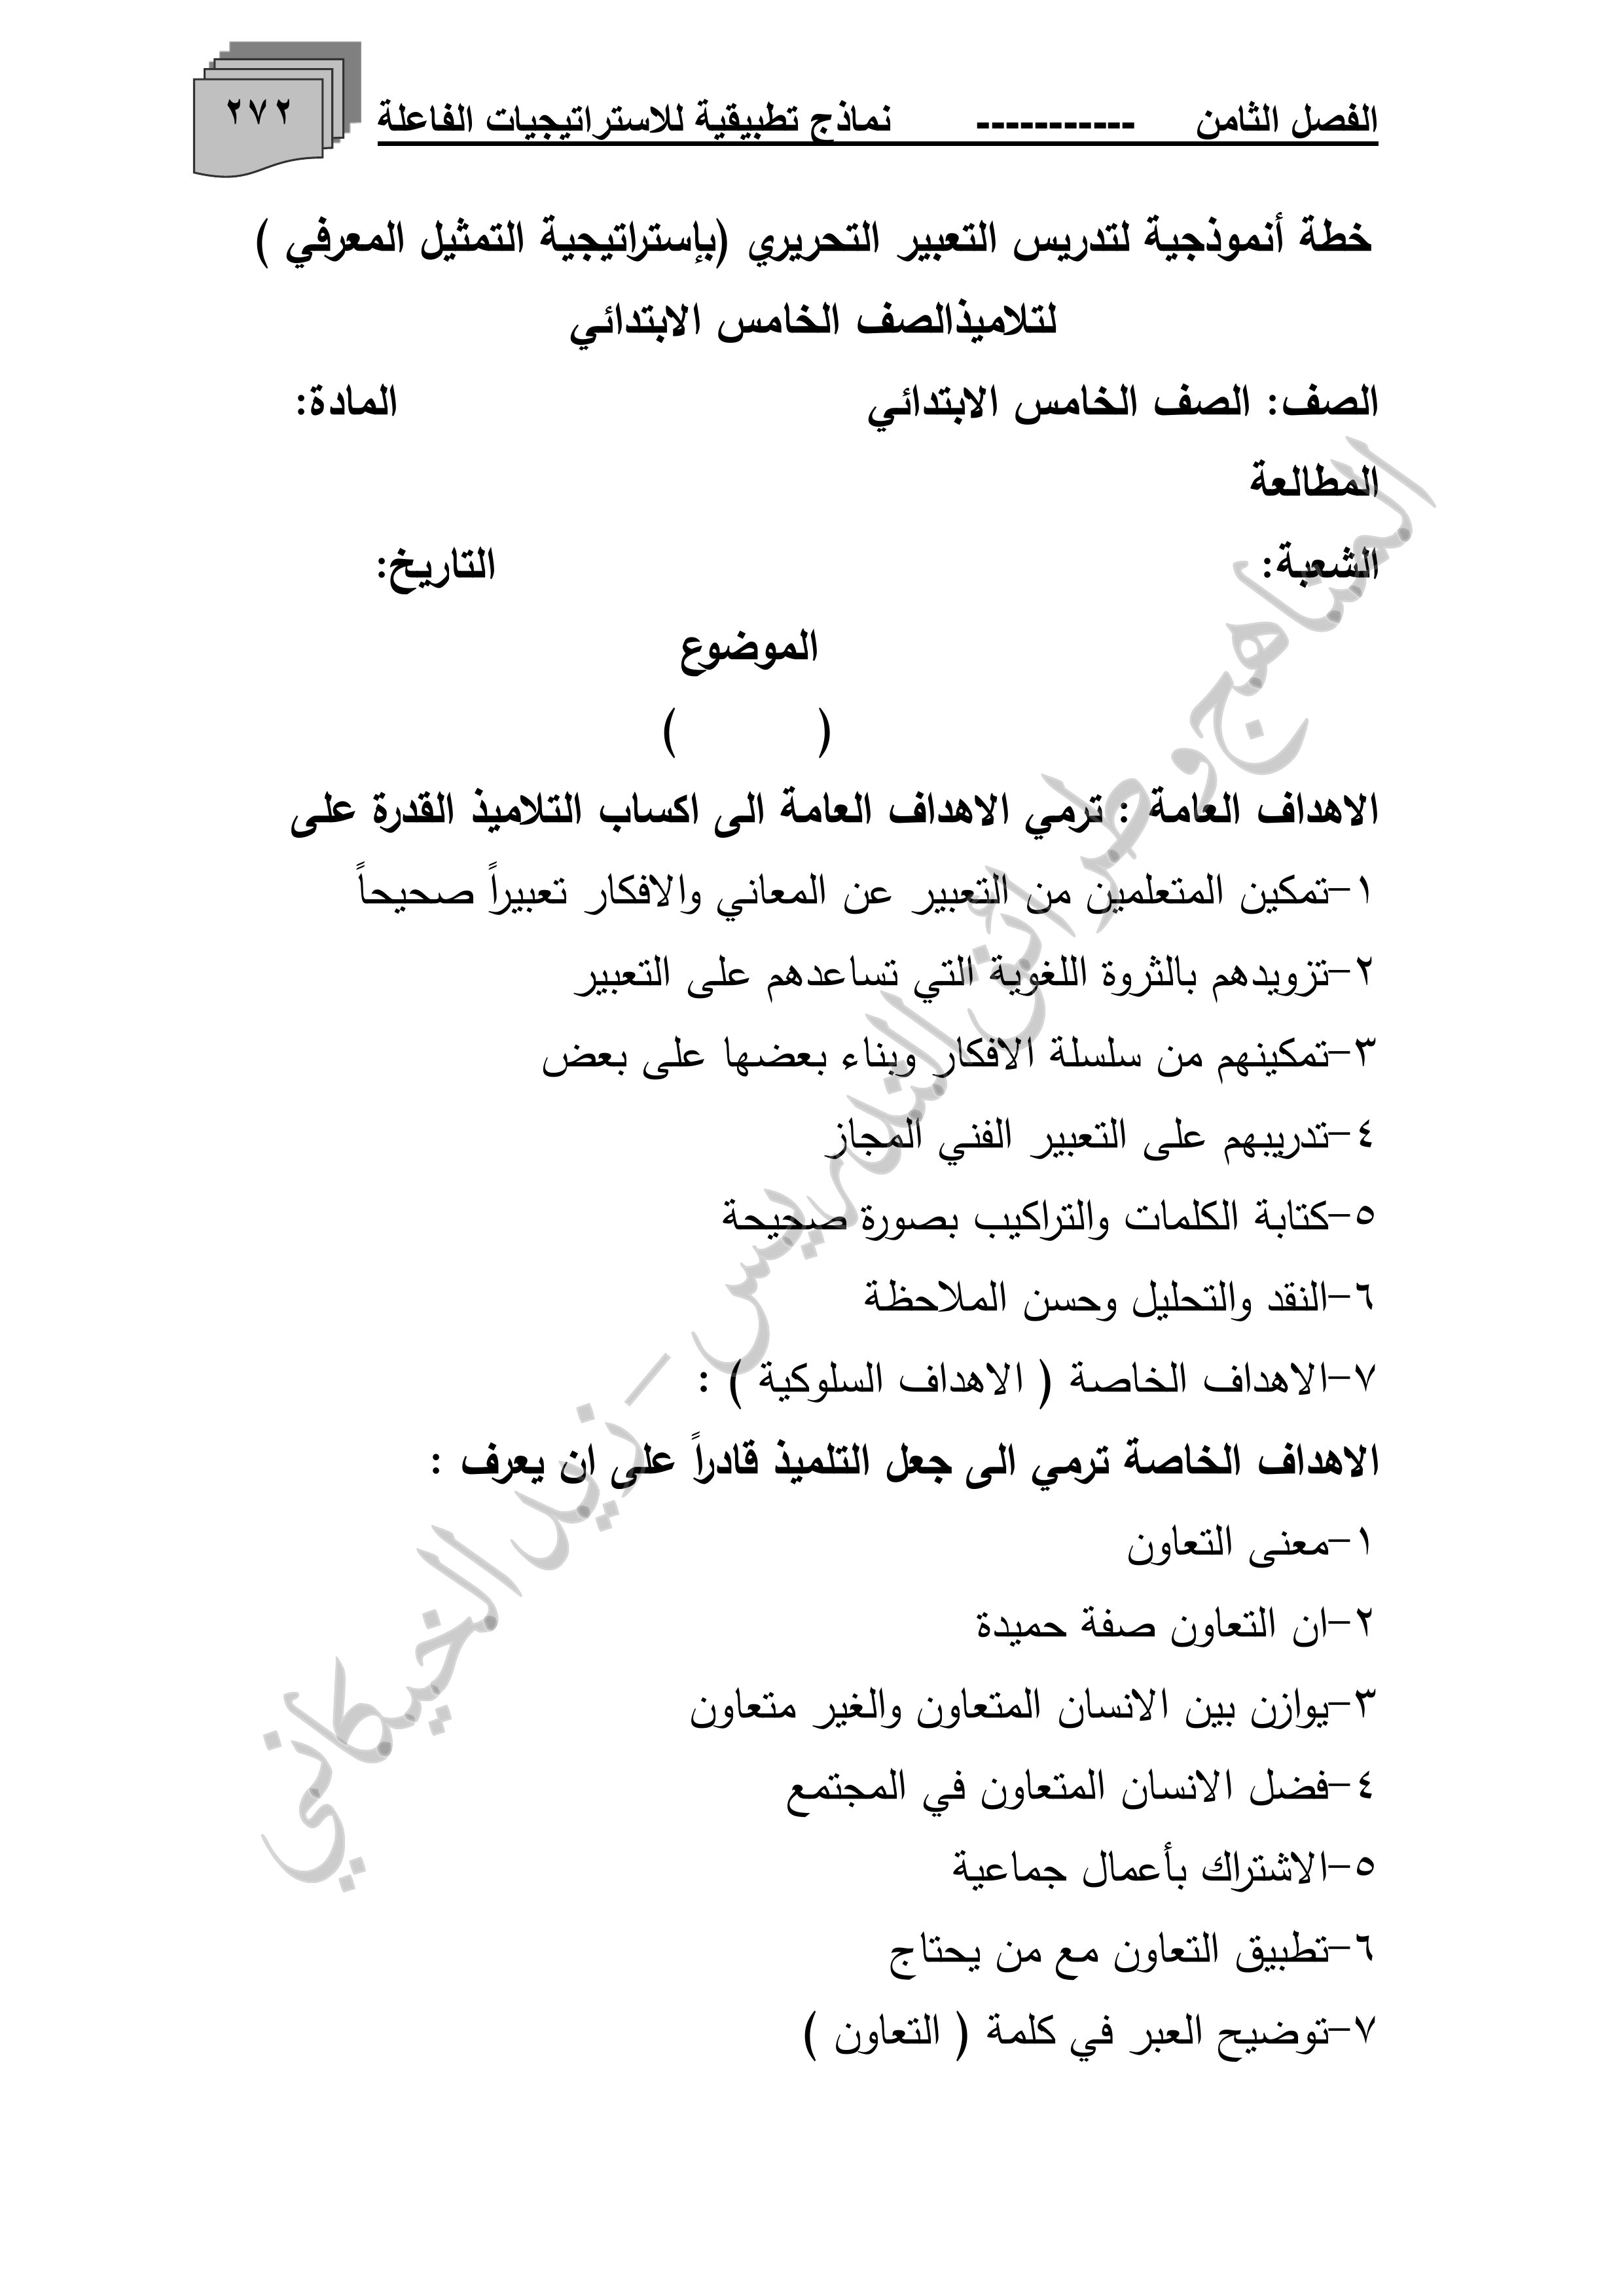 الفصل الثامن ----------- نماذج تطبيقية للاستراتيجيات الفاعلة
٢٧٢
خطة أنموذجية لتدريس التعبير التحريري (بإستراتيجية التمثيل المعرفي )
لتلاميذالصف الخامس الابتدائي
الصف: الصف الخامس الابتدائي المادة:
المطالعة
الشعبة: التاريخ:
الموضوع
( )
الاهداف العامة : ترمي الاهداف العامة الى اكساب التلاميذ القدرة على
١-تمكين المتعلمين من التعبير عن المعاني والافكار تعبيراً صحيحاً
٢-تزويدهم بالثروة اللغوية التي تساعدهم على التعبير
٣-تمكينهم من سلسلة الافكار وبناء بعضها على بعض
٤-تدريبهم على التعبير الفني المجاز
٥-كتابة الكلمات والتراكيب بصورة صحيحة
٦-النقد والتحليل وحسن الملاحظة
٧-الاهداف الخاصة ( الاهداف السلوكية ) :
الاهداف الخاصة ترمي الى جعل التلميذ قادراً على ان يعرف :
١-معنى التعاون
٢-ان التعاون صفة حميدة
٣-يوازن بين الانسان المتعاون والغير متعاون
٤-فضل الانسان المتعاون في المجتمع
٥-الاشتراك بأعمال جماعية
٦-تطبيق التعاون مع من يحتاج
٧-توضيح العبر في كلمة ( التعاون )
المناهج وطرائق التدريس - زيد الخيكاني